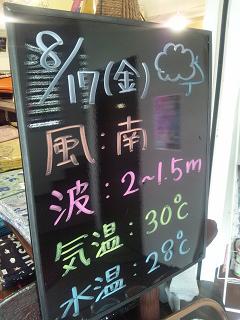 8/17(金)
風:南
波:2~1.5m
気温:30℃
水温:28℃